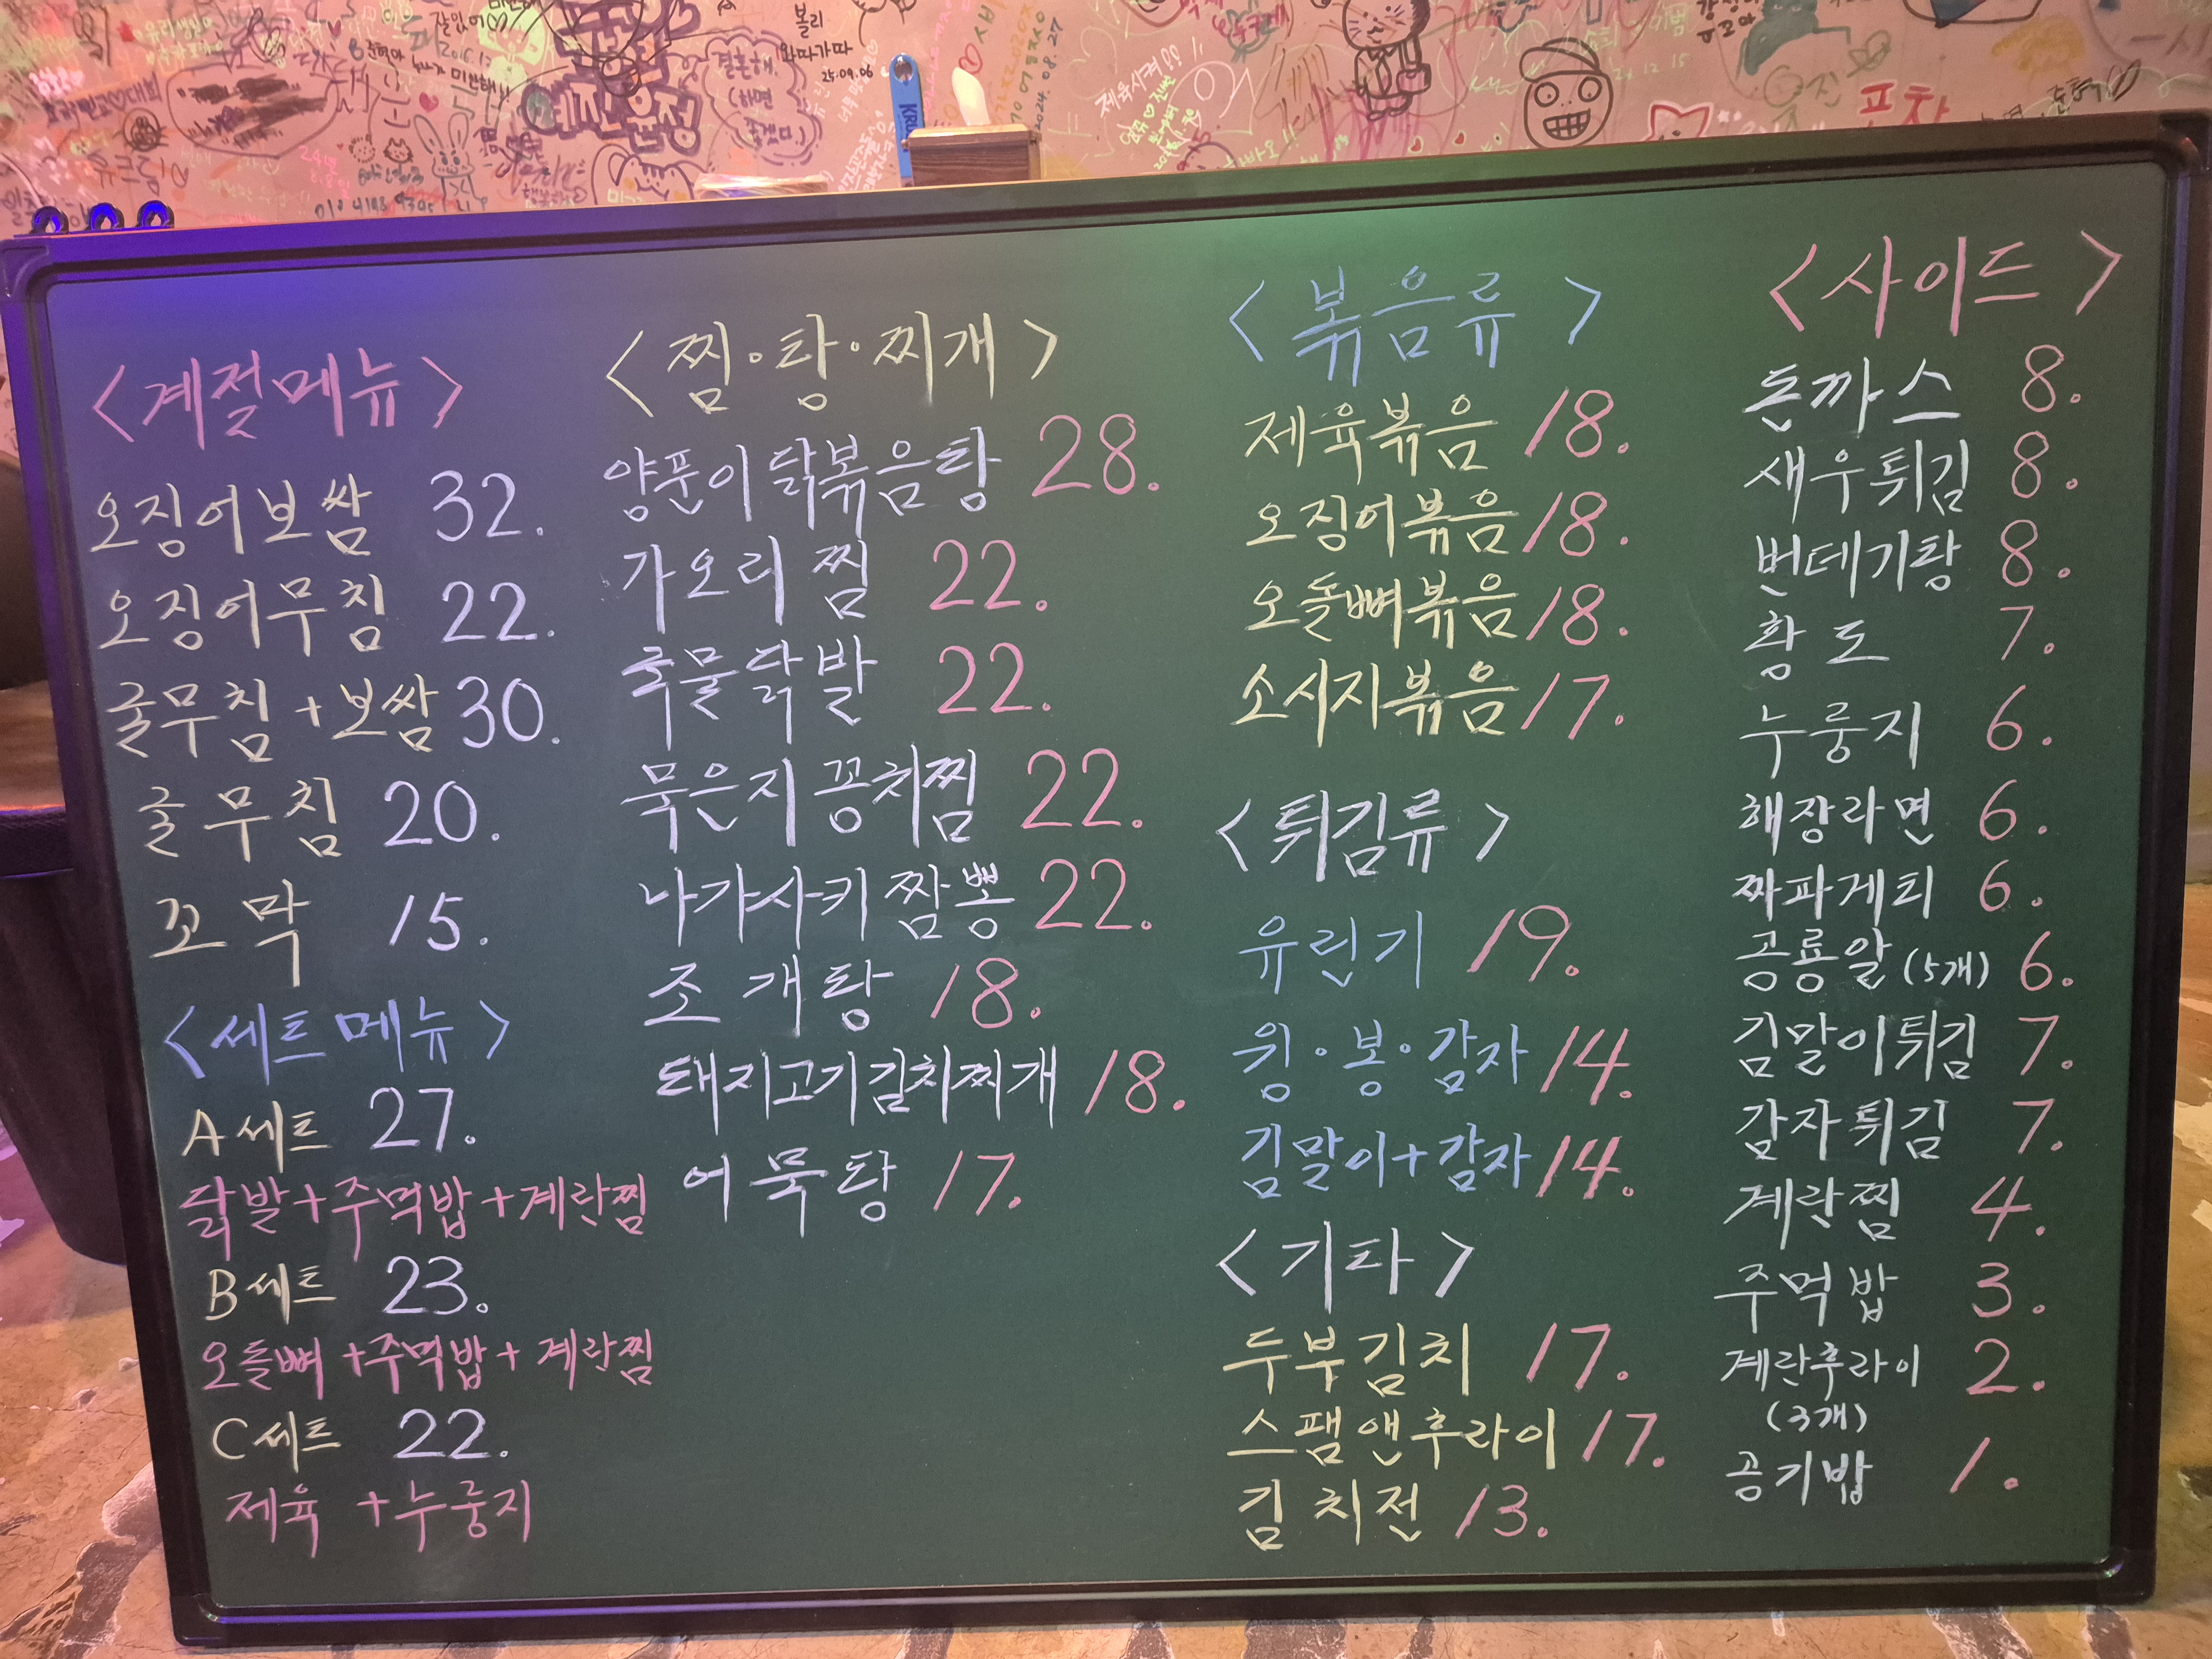 볼리
와따가따
25.09.06
결혼해
(하면
좋겠다.)
예진윤정
제육시켜!!
2024.08.27
포차
KRUSH
<계절메뉴>
오징어보쌈 32.
오징어무침 22.
굴무침+보쌈 30.
굴무침 20.
꼬막 15.
<세트메뉴>
A세트 27.
닭발+주먹밥+계란찜
B세트 23.
오돌뼈+주먹밥+계란찜
C세트 22.
제육+누룽지
<찜·탕·찌개>
양푼이닭볶음탕 28.
가오리찜 22.
국물닭발 22.
묵은지꽁치찜 22.
나가사키짬뽕 22.
조개탕 18.
돼지고기김치찌개 18.
어묵탕 17.
<볶음류>
제육볶음 18.
오징어볶음 18.
오돌뼈볶음 18.
소시지볶음 17.
<튀김류>
유린기 19.
윙·봉·감자 14.
김말이+감자 14.
<기타>
두부김치 17.
스팸앤후라이 17.
김치전 13.
<사이드>
돈까스 8.
새우튀김 8.
번데기탕 8.
황도 7.
누룽지 6.
해장라면 6.
짜파게티 6.
공룡알(5개) 6.
김말이튀김 7.
감자튀김 7.
계란찜 4.
주먹밥 3.
계란후라이 2.
(3개)
공기밥 1.